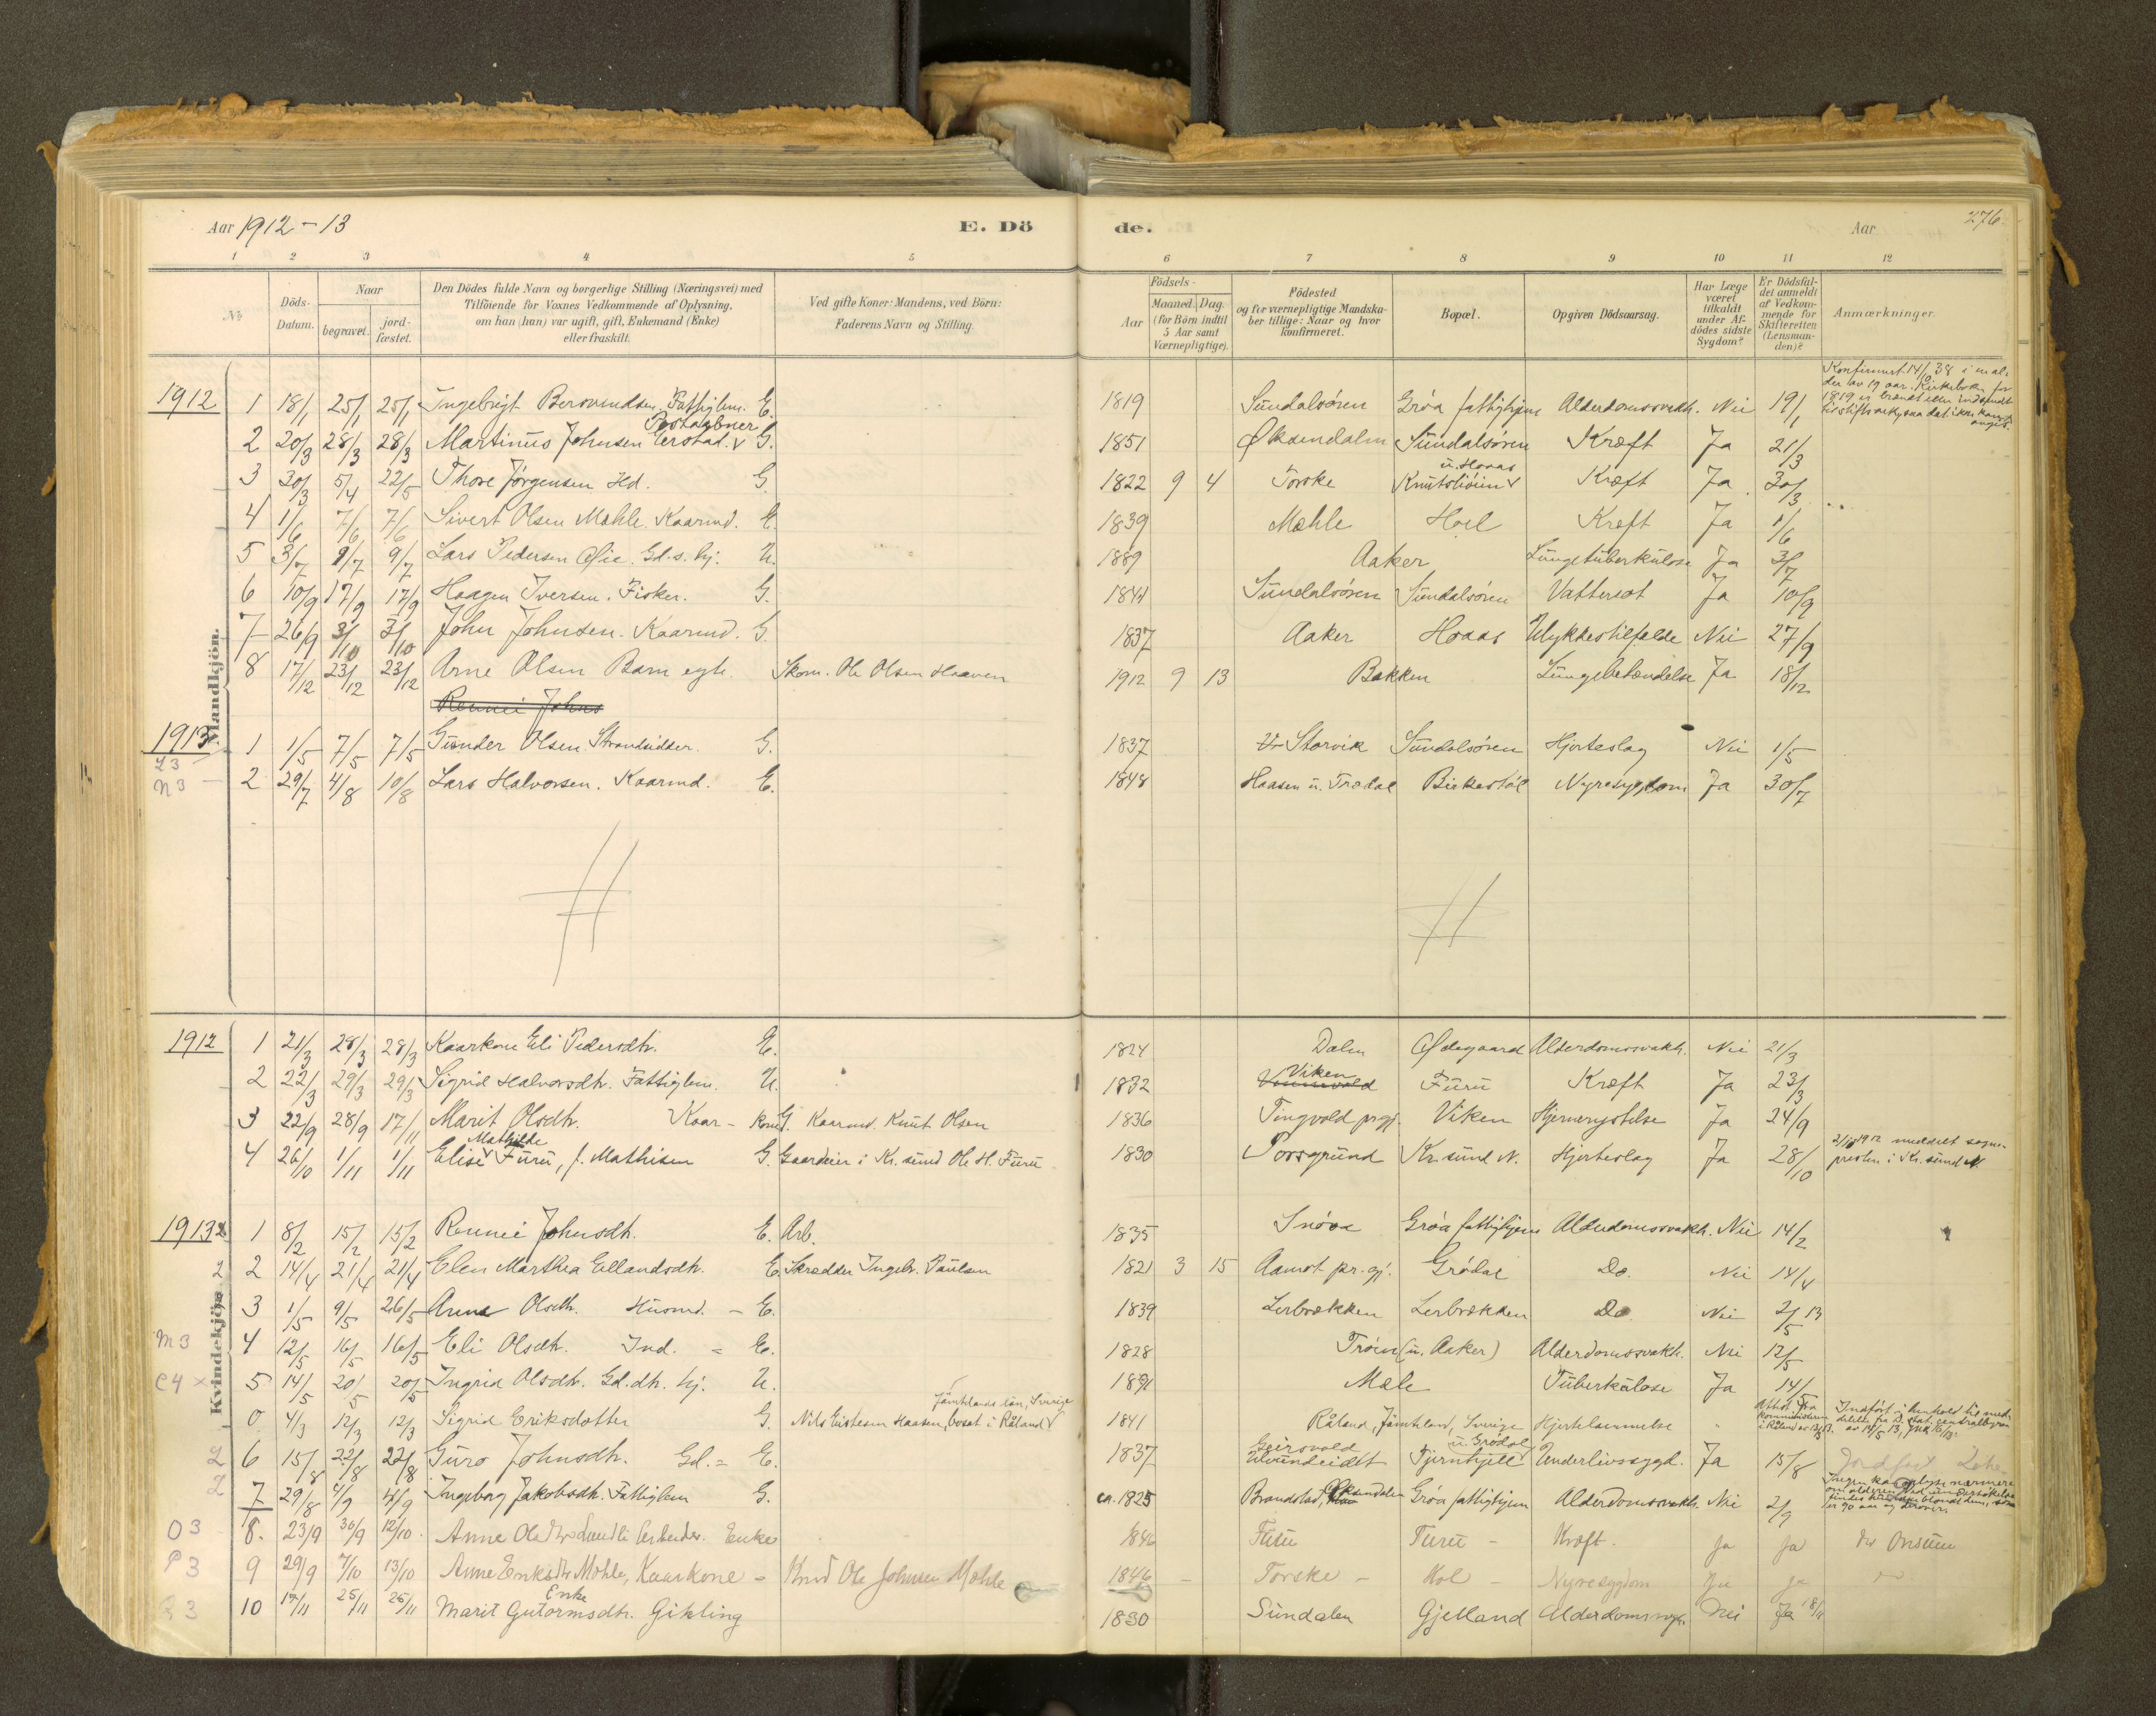 Aar 1912-13 E. Dö de. Aar 276
1 2 3 4 5 6 7 8 9 10 11 12
No
Döds-Datum.
Naar
begravet.
jord-fæstet.
Den Dödes fulde Navn og borgerlige Stilling (Næringsvei) med
Tilföiende for Voxnes Vedkommende af Oplysning,
om han (hun) var ugift, gift, Enkemand (Enke)
eller fraskilt.
Ved gifte Koner: Mandens, ved Börn:
Faderens Navn og Stilling.
Födsels-
Aar
Maaned. Dag.
(for Börn indtil
5 Aar samt
Værnepligtige).
Födested
og for værnepligtige Mandska-
ber tillige: Naar og hvor
konfirmeret.
Bopæl.
Opgiven Dödsaarsag.
Har Læge
været
tilkaldt
under Af-
dödes sidste
Sygdom?
Er Dödsfal-
det anmeldt
af Vedkom-
mende for
Skifteretten
(Lensman-
den)?
Anmærkninger.
Mandkjön.
1912 1 18/1 25/1 25/1 Ingebrigt Bersvendsen. Fattiglem. E. 1819 Sundalsøren Grøa fattighjem Alderdomssvakh. Nei 19/1
Konfirmert 14/10 38 i en al-
der av 19 aar. Kirkebok for
1819 er brændt
2 20/3 28/3 28/3 Martinus Johnsen Ørstad. v Postaabner G. 1851 Øksendalen Sundalsøren Kræft Ja 21/3
3 30/3 5/4 22/5 Thore Jørgensen Hd. G. 1822 9 4 Torske Knutslioien v u. Hoaas Kræft Ja 30/3
4 1/6 7/6 7/6 Sivert Olsen Mæhle. Kaarmd. E. 1839 Mæhle Hoel Kræft Ja 1/6
5 3/7 9/7 9/7 Lars Pedersen Øie. Gd.s. hj. U. 1889 Aaker Lungetuberkulose Ja 3/7
6 10/9 17/9 17/9 Haagen Iversen. Fisker. G. 1841 Sundalsøren Sundalsøren Vattersot Ja 10/9
7 26/9 3/10 3/10 John Johnsen. Kaarmd. G. 1837 Aaker Hoaas Ulykkestilfælde Nei 27/9
8 17/12 23/12 23/12 Arne Olsen Barn egte. Skom. Ole Olsen Haaven 1912 9 13 Bakken Lungebetændelse Ja 18/12
Rønnei Johns
1913 1 1/5 7/5 7/5 Gunder Olsen Strandsidder. G. 1837 Storvik Sundalsøren Hjerteslag Nei 1/5
L3
N3 2 29/7 4/8 10/8 Lars Halvorsen. Kaarmd. E. 1848 Haasen u. Trædal Birkestøl Nyresygdom Ja 30/7
Kvindekjön.
1912 1 21/3 28/3 28/3 Kaarkone Eli Pedersdtr. E. 1824 Dalen Ødegaard Alderdomssvakh. Nei 21/3
2 22/3 29/3 29/3 Sigrid Halvorsdtr. Fattiglem. U. 1832 Viken Furu Kræft Ja 23/3
3 22/9 28/9 17/11 Marit Olsdtr. Kaar-kone G. Kaarmd. Knut Olsen 1836 Tingvold prgj. Viken Hjernerystelse Ja 24/9
4 26/10 1/11 1/11 Elise v Mathilde Furu, f. Mathisen G. Gaardeier i Kr.sund Ole H. Furu 1830 Porsgrund Kr.sund N. Hjerteslag Ja 28/10 2/11 1912 meddelt sogne-
presten i Kr.sund N.
1913 1 8/2 15/2 15/2 Rønnei Johnsdtr. E. Arb. 1835 Snøva Grøa fattighjem Alderdomssvakh. Nei 14/2
2 2 14/4 21/4 21/4 Elen Marthea Ellandsdtr. E. Skrædder Ingebr. Paulsen 1821 3 15 Aamot pr.gj. Grødal Do. Nei 14/4
3 1/5 9/5 26/5 Anne Olsdtr. Husmd. - E. 1839 Lerbrækken Lerbrækken Do. Nei 2/5 13
M3 4 12/5 16/5 16/5 Eli Olsdtr. Ind. = E. 1828 Trøen (u. Aaker) Alderdomssvakh. Nei 12/5
C4 x 5 14/5 20/5 20/5 Ingrid Olsdtr. Gd.dtr. hj. U. 1891 Mæle Tuberkulose Ja 14/5
0 4/3 12/3 12/3 Sigrid Eriksdotter G. Nils Eistesen Haasen, bosat i Råland v Jämtlands län, Sverige 1841 Råland, Jämtland, Sverige Hjertelammelse "
Attest fra
Indført i henhold til med-
delelse fra D. stat. centralbyraa
av 14/5 13,
2 6 15/8 22/8 22/8 Guro Johnsdtr. Gd. = E. 1837 Geirsvold Tjernhjell u. Grødal Underlivssygd. Ja 15/8
2 7 29/8 4/9 4/9 Ingeborg Jakobsdtr. Fattiglem G. ca. 1825 Brandstad, Øksendalen Grøa fattighjem Alderdomssvakh. Nei 2/9
Ingen kan oplyse nærmere
om alderen.
O3 8. 23/9 30/9 12/10. Anne Olsdtr. Enke 1846 Furu Furu - Kræft. Ja Ja
P3 9 29/9 7/10 13/10 Anne Eriksdtr. Mæhle, Kaarkone - Knud Ole Johnsen Mæhle 1846 - Torske - Hol - Nyresygdom Ja Ja
Q3 10 17/11 25/11 25/11 Marit Gutormsdtr. Gikling Enke 1830 Sundalen Gjelland Alderdomssvgh. Nei Ja 18/11